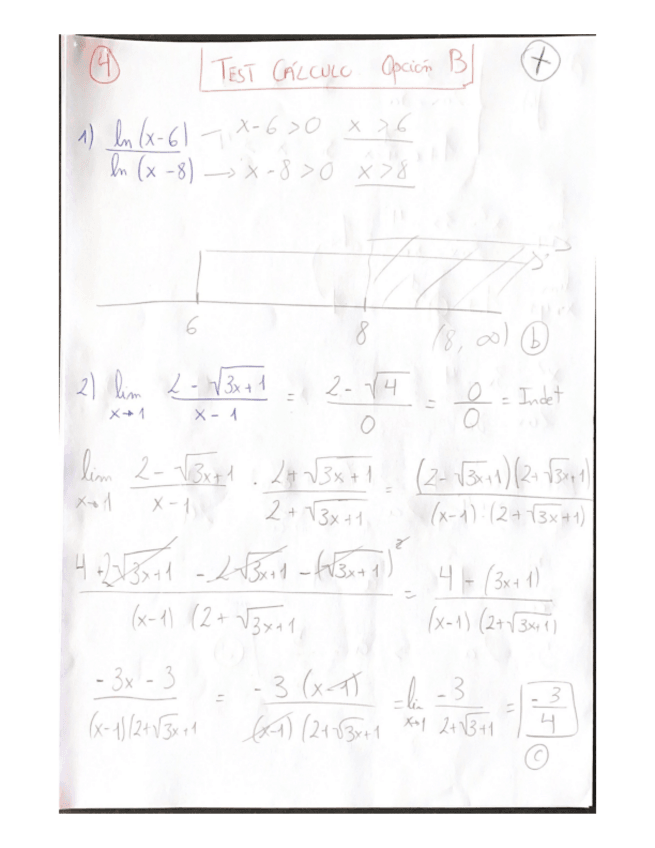 4 TEST CÁLCULO Opción B +
1) ln(x-6) / ln(x-8)
→ x-6>0 x>6
→ x-8>0 x>8
6 8 (8, ∞) b
2) lim x→1 (2-√(3x+1)) / (x-1) = (2-√4) / 0 = 0/0 = Indet
lim x→1 (2-√(3x+1)) / (x-1) · (2+√(3x+1)) / (2+√(3x+1)) = (2-√(3x+1))(2+√(3x+1)) / (x-1)·(2+√(3x+1))
4+2√(3x+1) -2√(3x+1) -(√(3x+1))² / (x-1)(2+√(3x+1) = 4-(3x+1) / (x-1)(2+√(3x+1))
-3x-3 / (x-1)(2+√(3x+1) = -3(x-1) / (x-1)(2+√(3x+1) = lim x→1 -3 / 2+√(3+1) = -3/4
c